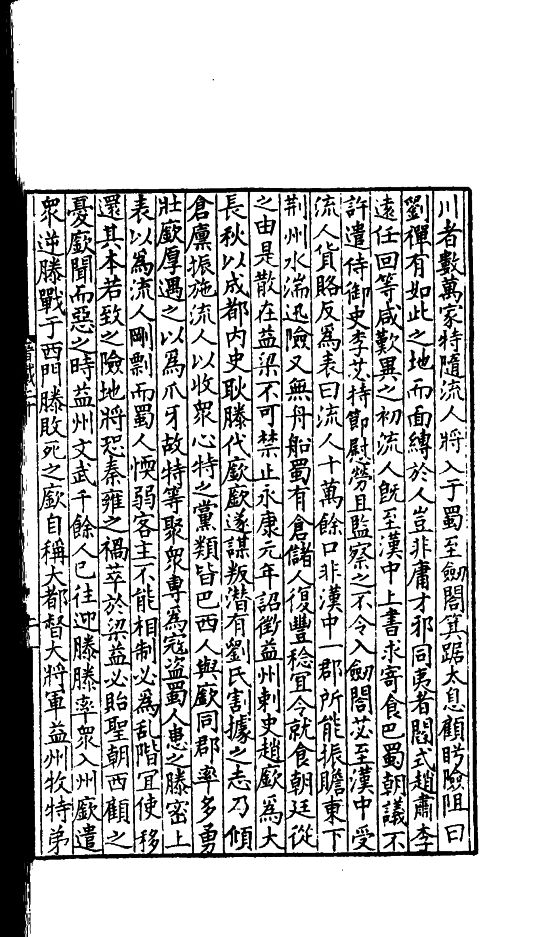 川者數萬家特隨流人將入于蜀至劔閣箕踞太息顧眄險阻曰
劉禪有如此之地而面縛於人豈非庸才邪同夷者閻式趙肅李
遠任回等咸歎異之初流人旣至漢中上書求寄食巴蜀朝議不
許遣侍御史李苾持節慰勞且監察之不令入劔閣苾至漢中受
流人貨賂反爲表曰流人十萬餘口非漢中一郡所能振贍東下
荆州水湍迅險又無舟船蜀有倉儲人復豐稔冝令就食朝廷從
之由是散在益梁不可禁止永康元年詔徵益州刺史趙廞爲大
長秋以成都内史耿滕代廞廞遂謀叛潜有劉氏割據之志乃傾
倉廪振施流人以收衆心特之黨類皆巴西人與廞同郡率多勇
壯廞厚遇之以爲爪牙故特等聚衆專爲寇盜蜀人患之滕密上
表以爲流人剛剽而蜀人愞弱客主不能相制必爲乱階冝使移
還其本若致之險地將恐秦雍之禍萃於梁益必貽聖朝西顧之
憂廞聞而惡之時益州文武千餘人已往迎滕滕率衆入州廞遣
衆逆滕戰于西門滕敗死之廞自稱大都督大將軍益州牧特弟